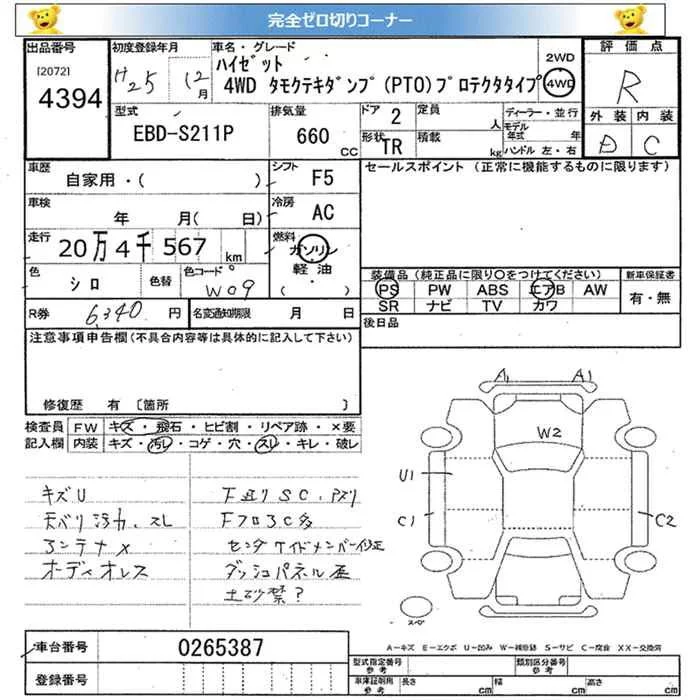 完全ゼロ切りコーナー
出品番号
[2072]
4394
初度登録年月
H25 12月
車名・グレード
ハイゼット
4WD タモクテキダンプ(PTO)プロテクタタイプ
2WD
4WD
評価点
R
外装 内装
D C
型式
EBD-S211P
排気量
660 CC
ドア 2
形状 TR
定員 人
積載 kg
ディーラー・並行
モデル年式 年
ハンドル 左・右
車歴
自家用・( )
シフト F5
セールスポイント (正常に機能するものに限ります)
車検
年 月( 日)
冷房 AC
走行
20万4千567 km
燃料
ガソリン
軽油
( ・ )
色
シロ
色替
色コード
W09
装備品 (純正品に限り○をつけてください)
PS PW ABS エアB AW
SR ナビ TV カワ
新車保証書
有・無
R券 6,340 円
名変通知期限 月 日
後日品
注意事項申告欄(不具合内容等は具体的に記入して下さい)
修復歴 有 〔箇所 〕
検査員記入欄
FW キズ・飛石・ヒビ割・リペア跡・×要
内装 キズ・汚れ・コゲ・穴・スレ・キレ・破レ
キズU
天バリ汚れ、スレ
アンテナ×
オーディオレス
下廻りSC、
FフロアC多
センタサイドメンバー修正
ダッシュパネル歪
土砂禁?
A1 A1
W2
U1
C1
C2
スペア
A-キズ E-エクボ U-凹み W-補修跡 S-サビ C-腐食 XX-交換済
車台番号 0265387
登録番号
型式指定番号 参考
類別区分番号 参考
車庫証明用 参考 長さ cm 幅 cm 高さ cm